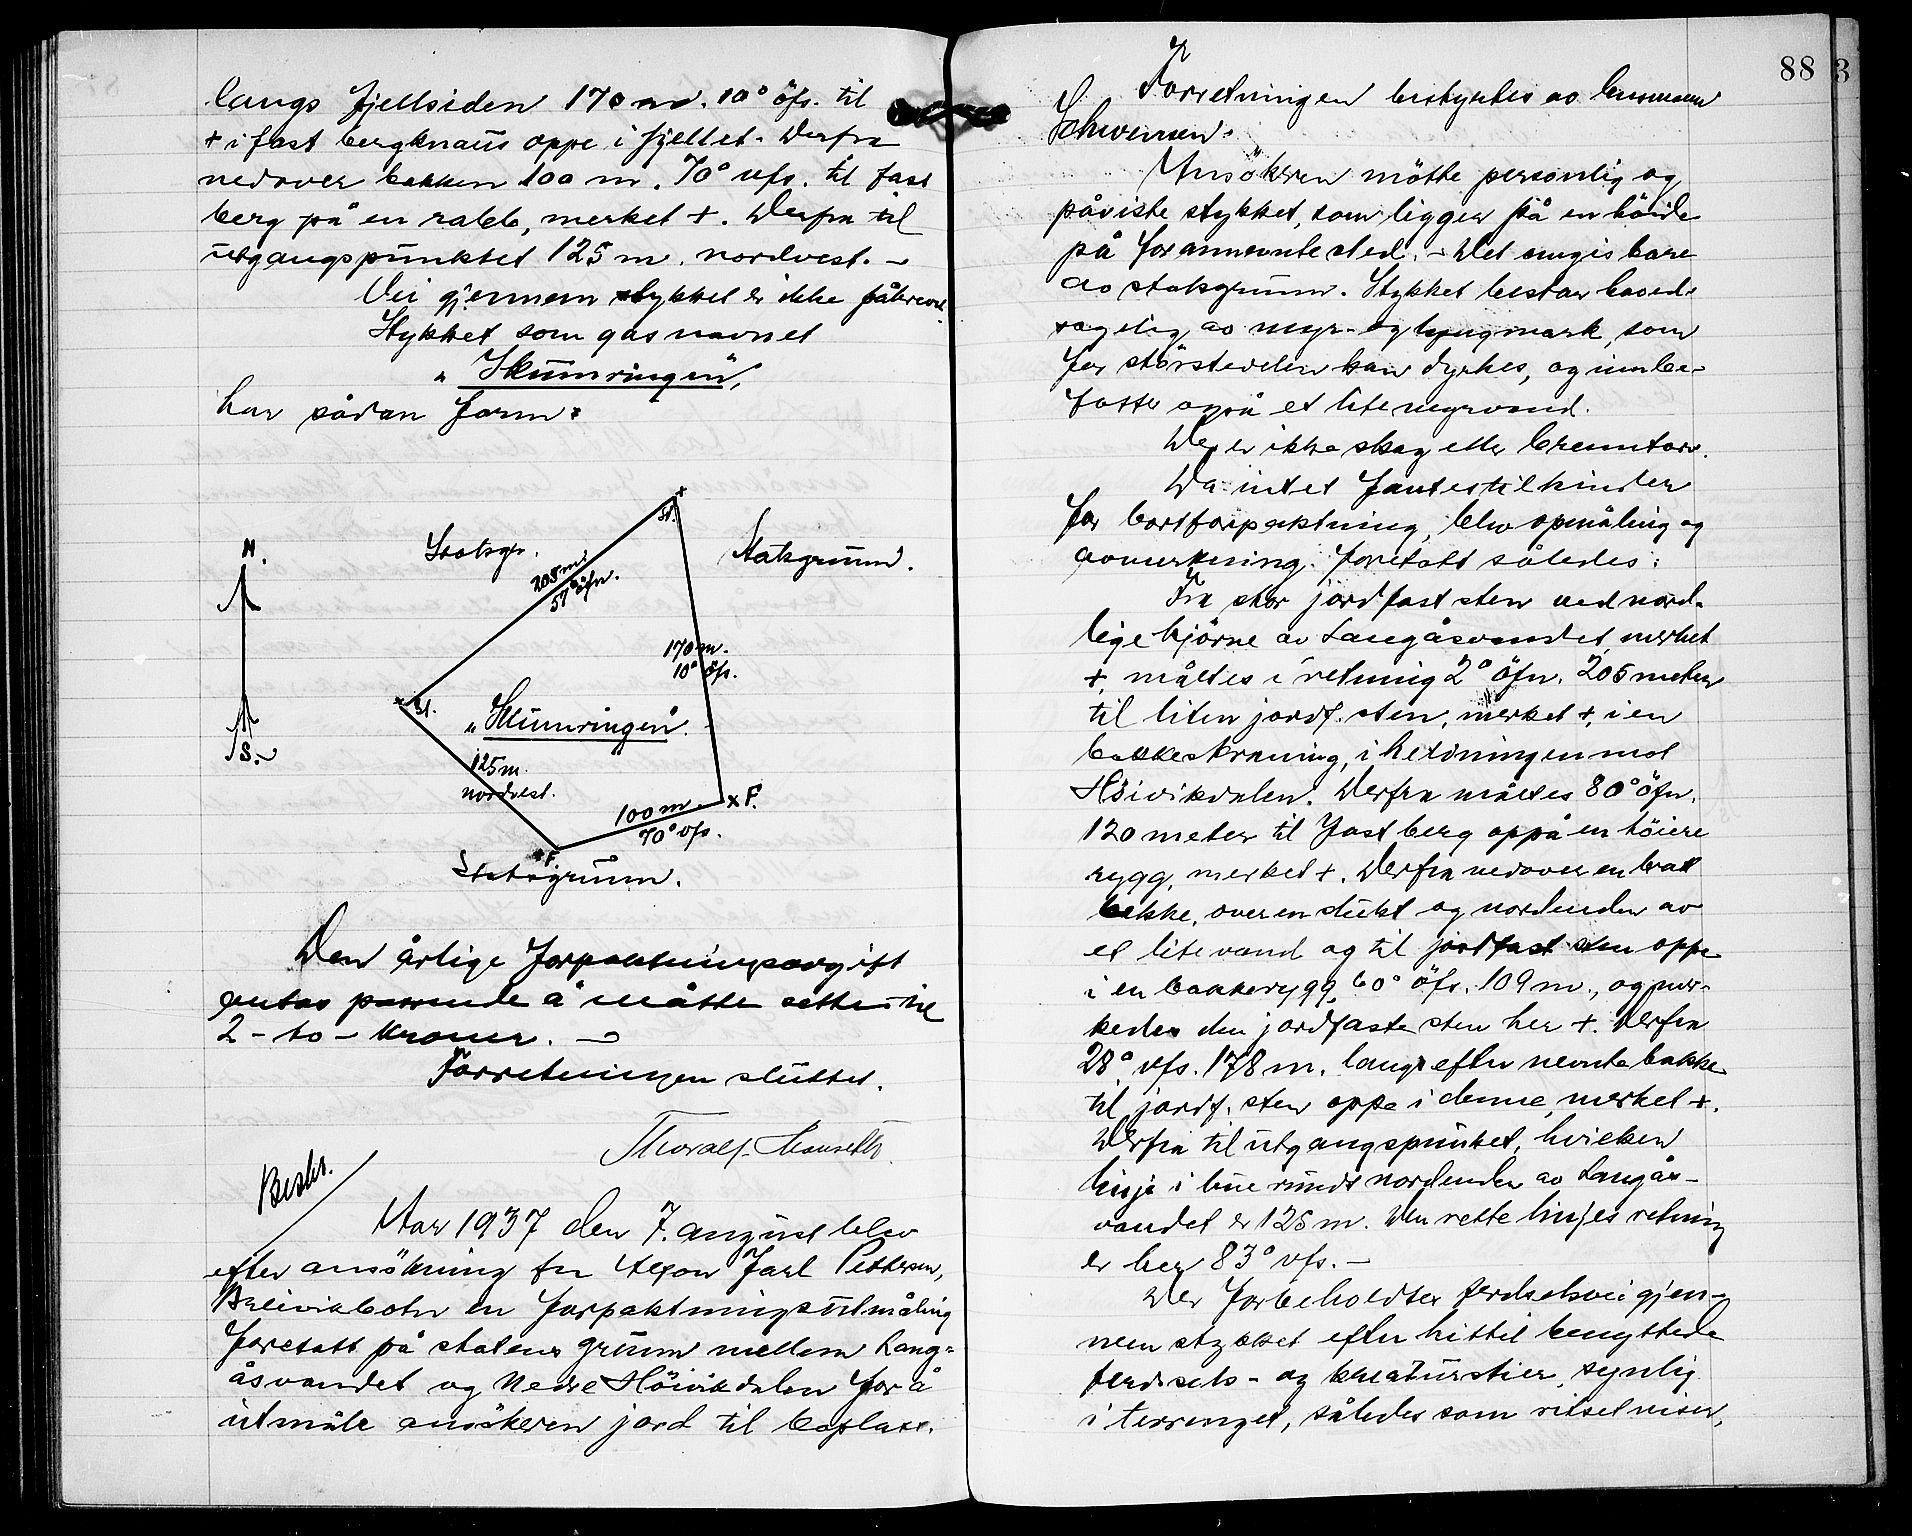 langs fjellsiden 170 m. 10° öfs. til
+ i fast bergknaus oppe i fjellet. Derfra
nedover bakken 100 m. 70° vfs. til fast
berg på en rabb, merket +. Derfra til
utgangspunktet 125 m. nordvest. –
Vei gjennem stykket er ikke påkrevd.
Stykket som gas navnet
"Skumringen",
har sådan form:
N.
S.
+
St.
Statsgr.
Statsgrunn.
208 m.
57° öfn.
170 m.
10° öfs.
+ St.
"Skumringen".
125 m.
nordvest.
100 m.
70° vfs.
x F.
+ F.
Statsgrunn.
Den årlige forpaktningsavgift
antas passende å måtte settes til
2 – to – kroner. –
Forretningen sluttet.
Thoralf
Beskr.
Aar 1937 den 7. august blev
efter ansökning fra Jarl Pettersen,
en forpaktningsutmåling
foretatt på statens grunn mellem Lang-
åsvandet og Nedre Höivikdalen for å
utmåle ansökeren jord til boplass.
88
3
Forretningen bestyrtes av lensmann
Schwensen.
Ansökeren mötte personlig og
påviste stykket, som ligger på en höide
på forannevnte sted. – Det omgis bare
av statsgrunn. Stykket bestaar hoved-
sagelig av myr- og lyngmark, som
for störstedelen kan dyrkes, og innbe-
fatter også et lite myrvand.
Der er ikke skog eller brenntorv.
Da intet fantes til hinder
for bortforpaktning, blev opmåling og
avmerkning foretatt således:
Fra stor jordfast sten ved nord-
lige hjörne av Langåsvandet, merket
+, måltes i retning 2° öfn. 205 meter
til liten jordf. sten, merket +, i en
bakkeskråning, i heldningen mot
Höivikdalen. Derfra måltes 80° öfn.
120 meter til fast berg oppå en höiere
rygg, merket +. Derfra nedover en bratt
bakke, over en slukt og nordenden av
et lite vand og til jordfast sten oppe
i en bakkerygg, 60° öfs. 109 m., og mer-
kedes den jordfaste sten her +. Derfra
28° vfs. 178 m. langs efter nevnte bakke
til jordf. sten oppe i denne, merket +.
Derfra til utgangspunktet, hvilken
linje i bue rundt nordenden av Langås-
vandet er 125 m. Den rette linjes retning
er her 83° vfs. –
Der forbeholdtes ferdselsvei gjen-
nem stykket efter hittil benyttede
ferdsels- og kreaturstier, synlig
i terrenget, således som ritset viser,